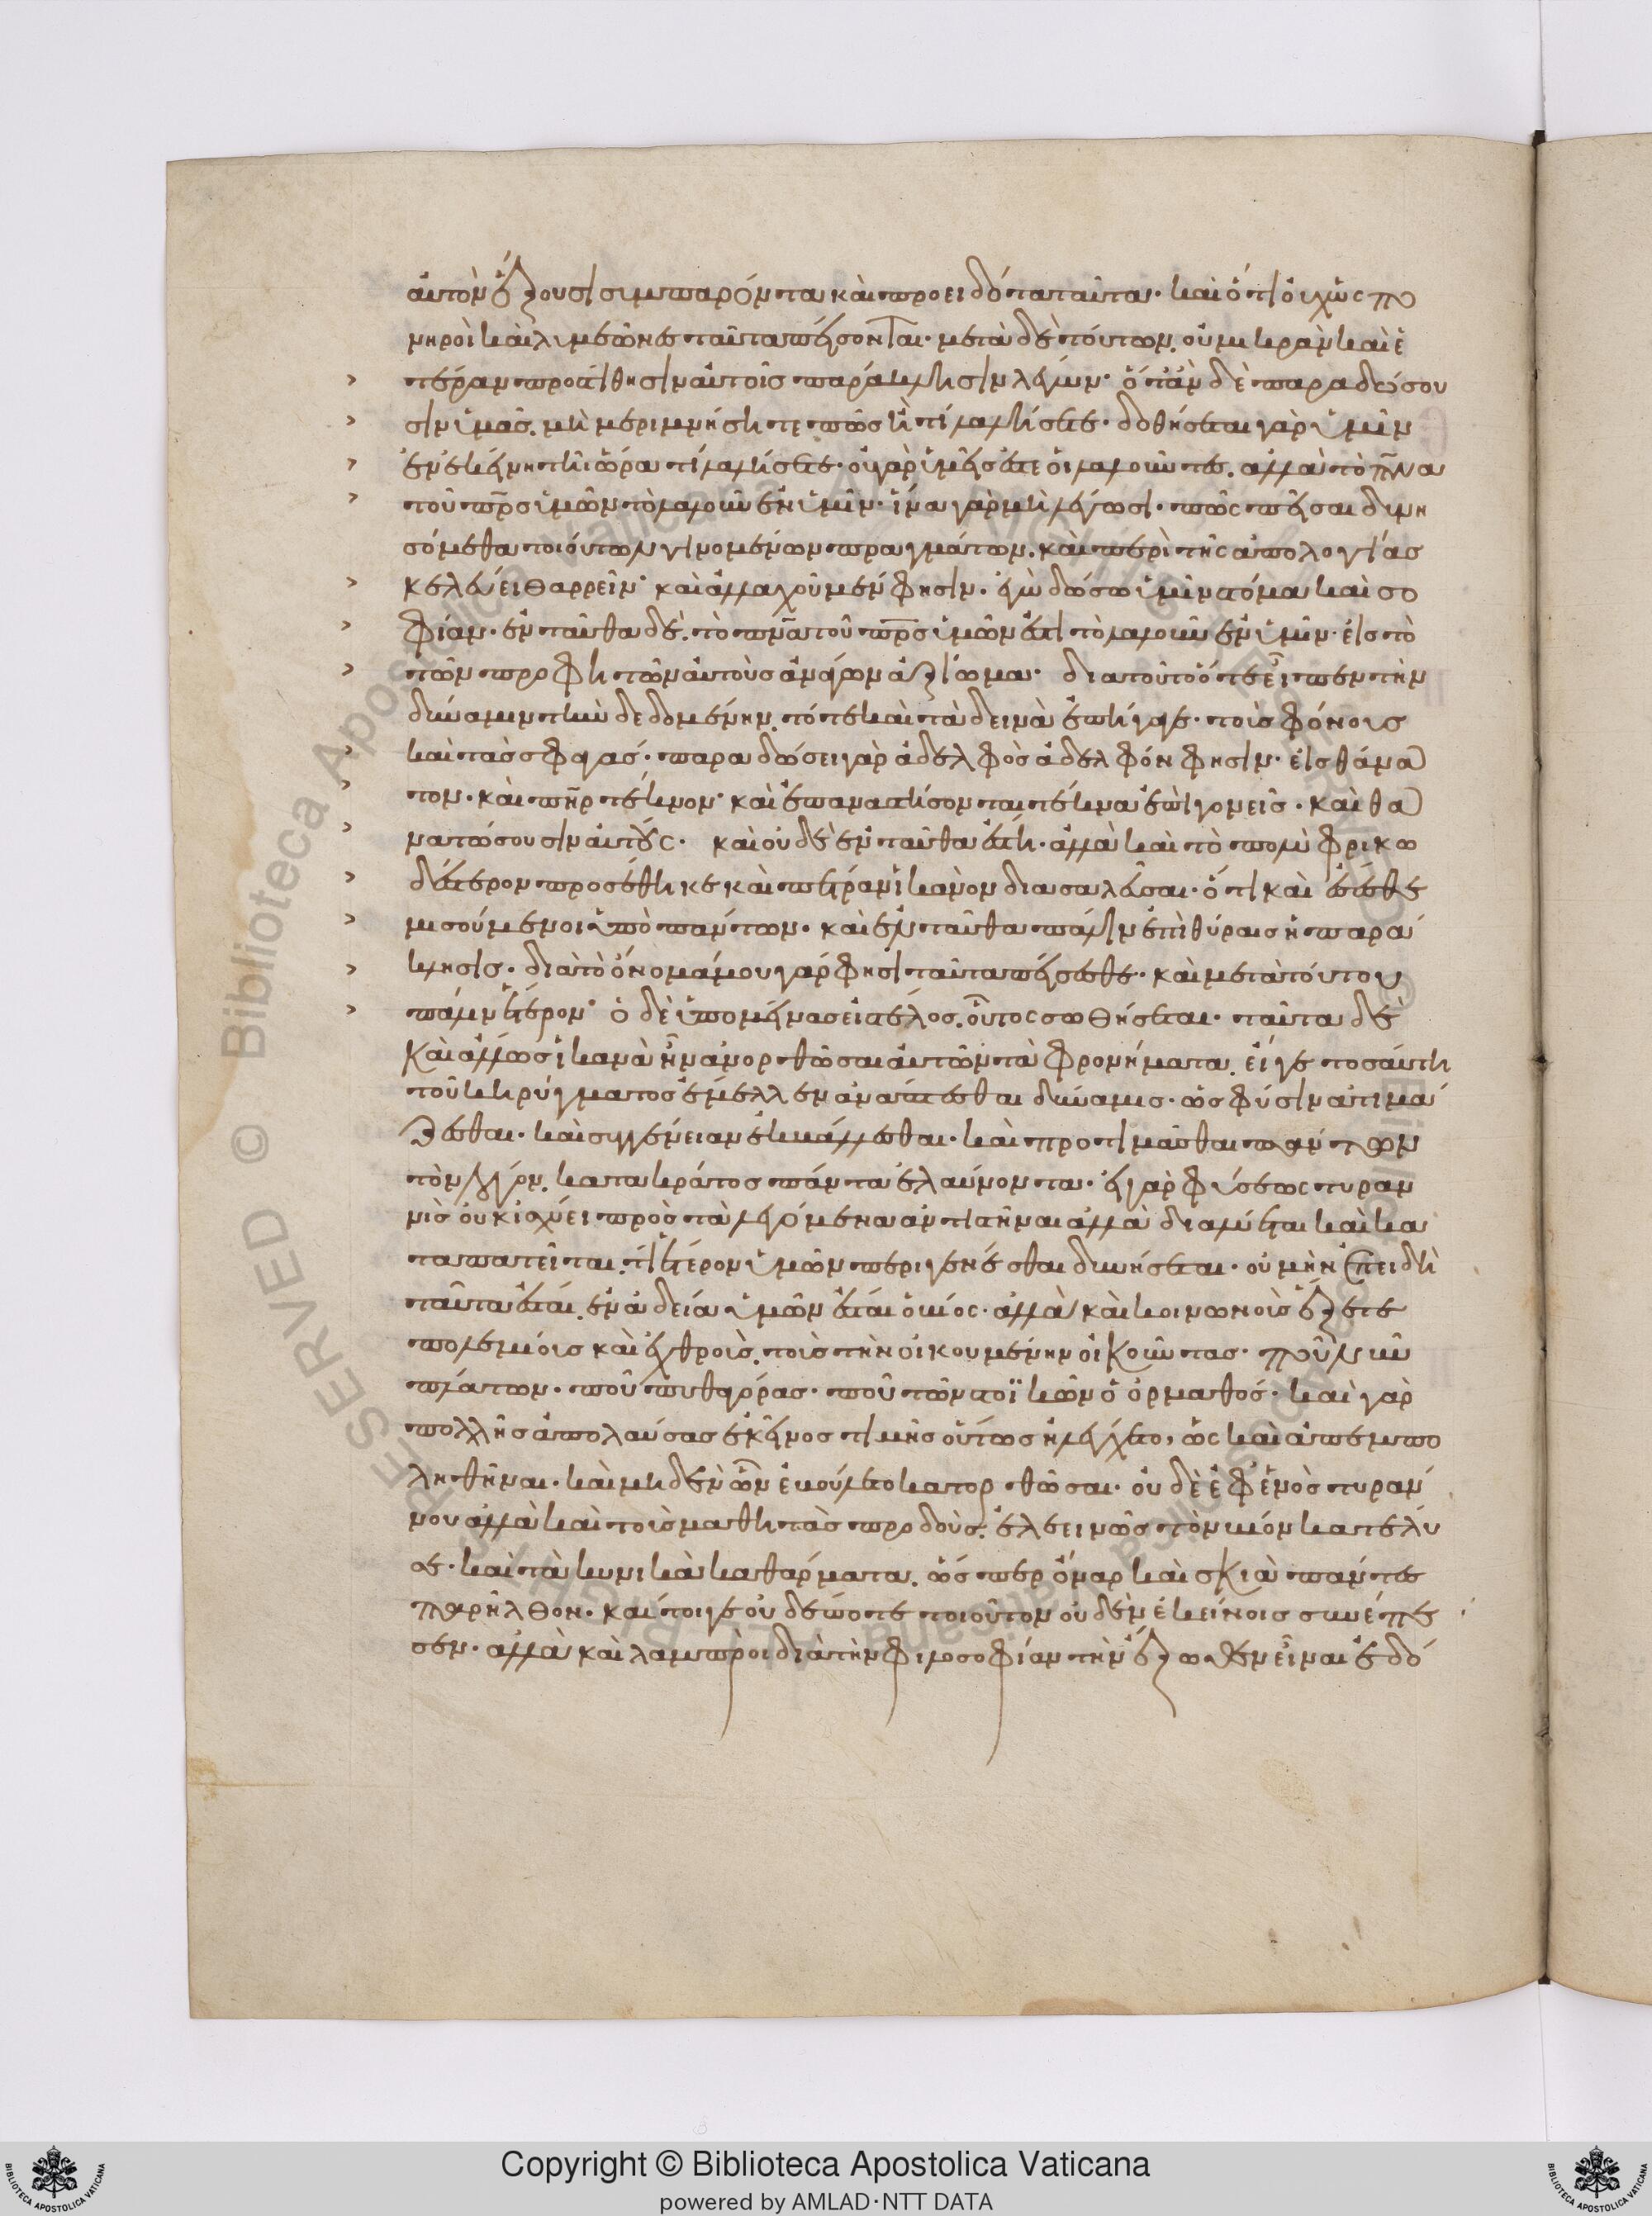 αὐτὸν ἕξουσι συμπαρόντα καὶ προειδότα ταῦτα· καὶ ὅτι οὐχ ὡς πο
νηροὶ καὶ λυμεῶνες ταῦτα πείσονται· μετὰ δὲ τούτων. οὐ μικρὰν καὶ ἑ
τέραν προστίθησιν αὐτοῖς παράκλησιν λέγων· ὅταν δὲ παραδώσου
σιν ὑμᾶς. μὴ μεριμνήσητε πῶς ἢ τί λαλήσετε· δοθήσεται γὰρ ὑμῖν
ἐν ἐκείνη τῆ ὥρα τί λαλήσετε· οὐ γὰρ ὑμεῖς ἐστε οἱ λαλοῦντες. ἀλλὰ τὸ πνα
τοῦ πρς ὑμῶν τὸ λαλοῦν ἐν ὑμῖν· ἵνα γὰρ μὴ λέγωσι· πῶς πεῖσαι δυνη
σόμεθα τοιούτων γινομένων πραγμάτων. καὶ περὶ τῆς ἀπολογίας
κελεύει θαρρεῖν· καὶ ἀλλαχοῦ μέν φησιν. ἐγὼ δώσω ὑμῖν στόμα καὶ σο
φίαν· ἐνταῦθα δὲ. τὸ πνα τοῦ πρς ὑμῶν ἐστι τὸ λαλοῦν ἐν ὑμῖν· εἰς τὸ
τῶν προφητῶν αὐτοὺς ἀνάγων ἀξίωμα· διὰ τοῦτο ὅτε εἶπεν τὴν
δύναμιν τὴν δεδομένην. τότε καὶ τὰ δεινὰ ἐπήγαγε· τοὺς φόνους
καὶ τὰς σφαγάς· παραδώσει γὰρ ἀδελφὸς ἀδελφόν φησιν· εἰς θάνα
τον· καὶ πηρ τέκνον· καὶ ἐπαναστήσονται τέκνα ἐπὶ γονεῖς· καὶ θα
νατώσουσιν αὐτούς· καὶ οὐδὲ ἐνταῦθα ἔστη· ἀλλὰ καὶ τὸ πολὺ φρικω
δέστερον προσέθηκε καὶ πέτραν ἱκανὸν διασαλεῦσαι· ὅτι καὶ ἔσεσθε
μισούμενοι ὑπὸ πάντων· καὶ ἐνταῦθα πάλιν ἐπὶ θύραις ἡ παρά
κλησις· διὰ τὸ ὄνομά μου γάρ φησι ταῦτα πείσεσθε· καὶ μετὰ τούτου
πάλιν ἕτερον· ὁ δὲ ὑπομείνας εἰς τέλος. οὗτος σωθήσεται· ταῦτα δὲ
καὶ ἄλλως ἱκανὰ ἦν ἀνορθῶσαι αὐτῶν τὰ φρονήματα. εἴ γε τοσαύτη
τοῦ κηρύγματος ἔμελλεν ἀνάπτεσθαι δύναμις· ὡς φύσιν ἀτιμά
ζεσθαι· καὶ συγγένειαν ἐκβάλλεσθαι· καὶ προτιμᾶσθαι πάντων
τὸν λόγον. κατὰ κράτος πάντα ἐλαύνοντα· εἰ γὰρ φύσεως τυραν
νὶς οὐκ ἰσχύει πρὸς τὰ λεγόμενα ἀντιστῆναι ἀλλὰ διαλύεται καὶ κα
ταπατεῖται. τί ἕτερον ὑμῶν περιγενέσθαι δυνήσεται· οὐ μὴν ἐπειδὴ
ταῦτα ἔσται. ἐν ἀδεία ὑμῶν ἔσται ὁ βίος· ἀλλὰ καὶ κοινωνοὺς ἕξετε
πολεμίους καὶ ἐχθροὺς. τοὺς τὴν οἰκουμένην οἰκοῦντας· ποῦ νῦν
πλάτων· ποῦ πυθαγόρας· ποῦ τῶν στοϊκῶν ὁ ὁρμαθός· καὶ γὰρ
πολλῆς ἀπολαύσας ἐκεῖνος τιμῆς οὕτως ἠλέγχετο, ὡς καὶ ἀπεμπο
ληθῆναι· καὶ μηδὲν ὧν ἐβούλετο κατορθῶσαι· οὐδὲ ἐφ᾽ ἑνὸς τυράν
νου ἀλλὰ καὶ τοὺς μαθητὰς προδοὺς. ἐλεεινῶς τὸν βίον κατέλυ
σε· καὶ τὰ κυνικὰ καθάρματα. ὥσπερ ὄναρ καὶ σκιὰ πάντες
παρῆλθον· καίτοι γε οὐδέποτε τοιοῦτον οὐδὲν ἐκείνοις συνέπε
σεν· ἀλλὰ καὶ λαμπροὶ διὰ τὴν φιλοσοφίαν τὴν ἔξωθεν εἶναι ἐδό
Copyright © Biblioteca Apostolica Vaticana
powered by AMLAD·NTT DATA